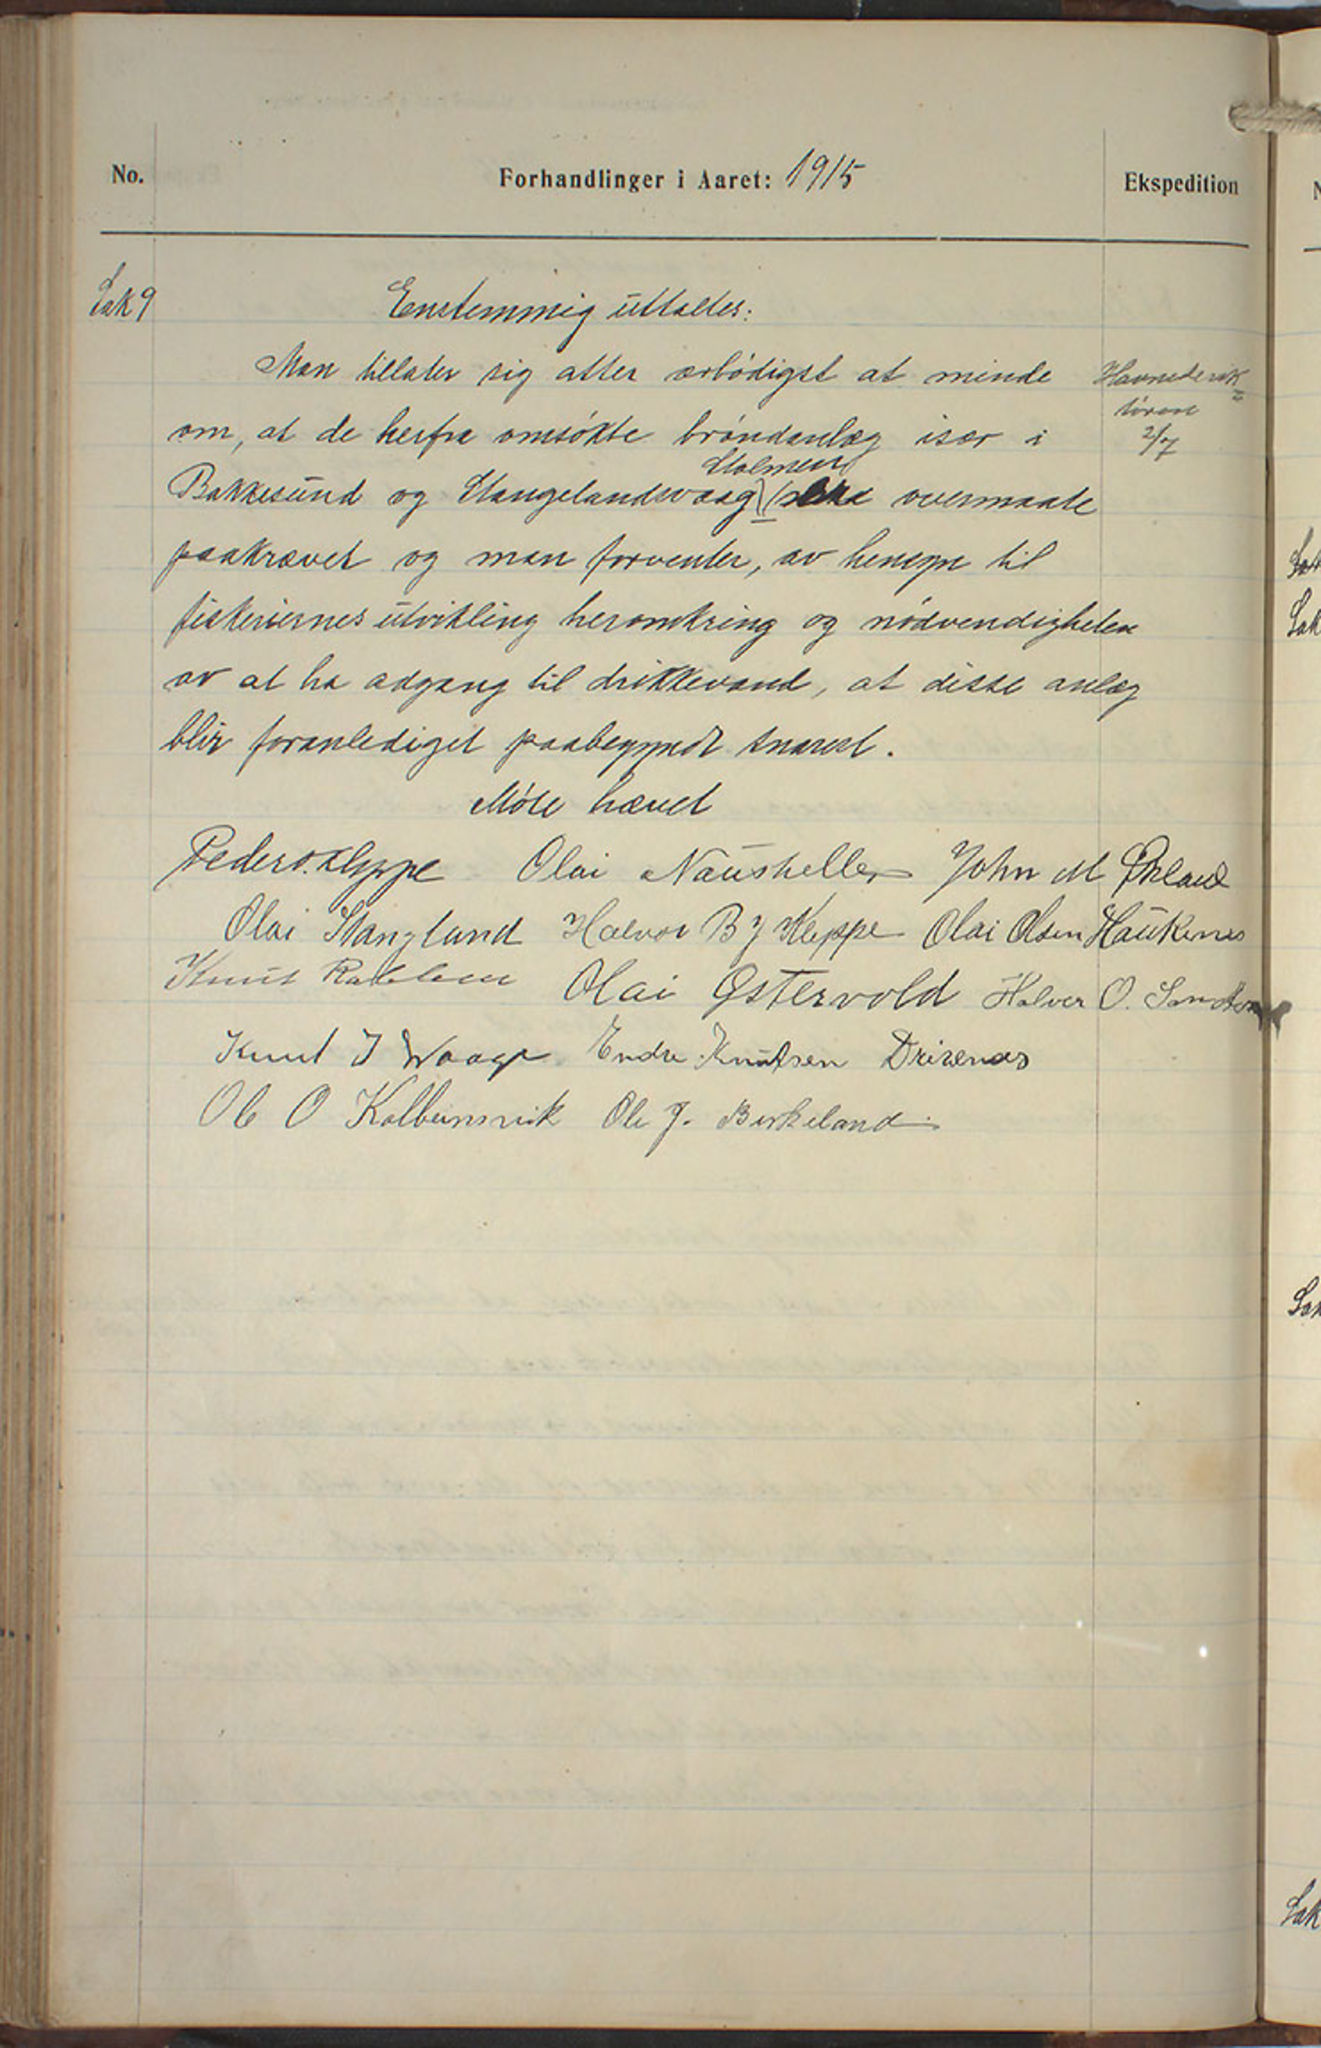 No.
Forhandlinger i Aaret: 1915
Ekspedition
Sak 9
Enstemmig uttaltes:
Man tillater sig atter ærbödigst at minde
Havnedirek=
tören
2/7
om, at de herfra omsökte bröndanlæg især i
Stolmen
Bakkesund og Stangelandsvaag er overmaate
paakrævet og man forventer, av hensyn til
fiskeriernes utvikling heromkring og nödvendigheten
av at ha adgang til drikkevand, at disse anlæg
blir foranlediget paabegyndt snarest.
Möte hævet
Peder O. Kleppe Olai Naustheller John M Økland
Olai Stangland Halvor B J Kleppe Olai Olsen Haukenes
Knut Rabben Olai Østervold Halvor O.
Knut J Waage Endre Knutsen Drivenes
Ole O Kolbeinsvik Ole J. Birkeland
Sak
Sak
Sak
Sak